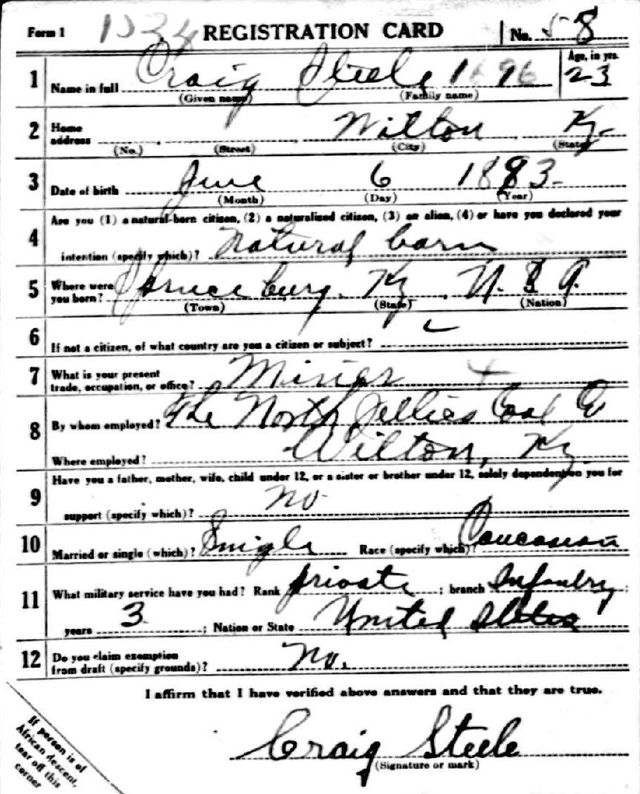 Form 1 1534 REGISTRATION CARD No. 58
1 Name in full Craig Steele 1696 Age, in yrs. 23
(Given name) (Family name)
2 Home address Wilton Ky.
(No.) (Street) (City) (State)
3 Date of birth June 6 1893
(Month) (Day) (Year)
Are you (1) a natural-born citizen, (2) a naturalized citizen, (3) an alien, (4) or have you declared your
4 intention (specify which)? natural born
5 Where were you born? Ky. U.S.A.
(Town) (State) (Nation)
6 If not a citizen, of what country are you a citizen or subject?
7 What is your present trade, occupation, or office? Miner
8 By whom employed? The North Jellico Coal Co
Where employed? Wilton, Ky.
Have you a father, mother, wife, child under 12, or a sister or brother under 12, solely dependent on you for
9 support (specify which)? no
10 Married or single (which)? Single Race (specify which)? Caucasian
11 What military service have you had? Rank private ; branch Infantry
years 3 ; Nation or State United States
12 Do you claim exemption from draft (specify grounds)? No.
I affirm that I have verified above answers and that they are true.
Craig Steele
(Signature or mark)
If person is of
African descent,
tear off this
corner